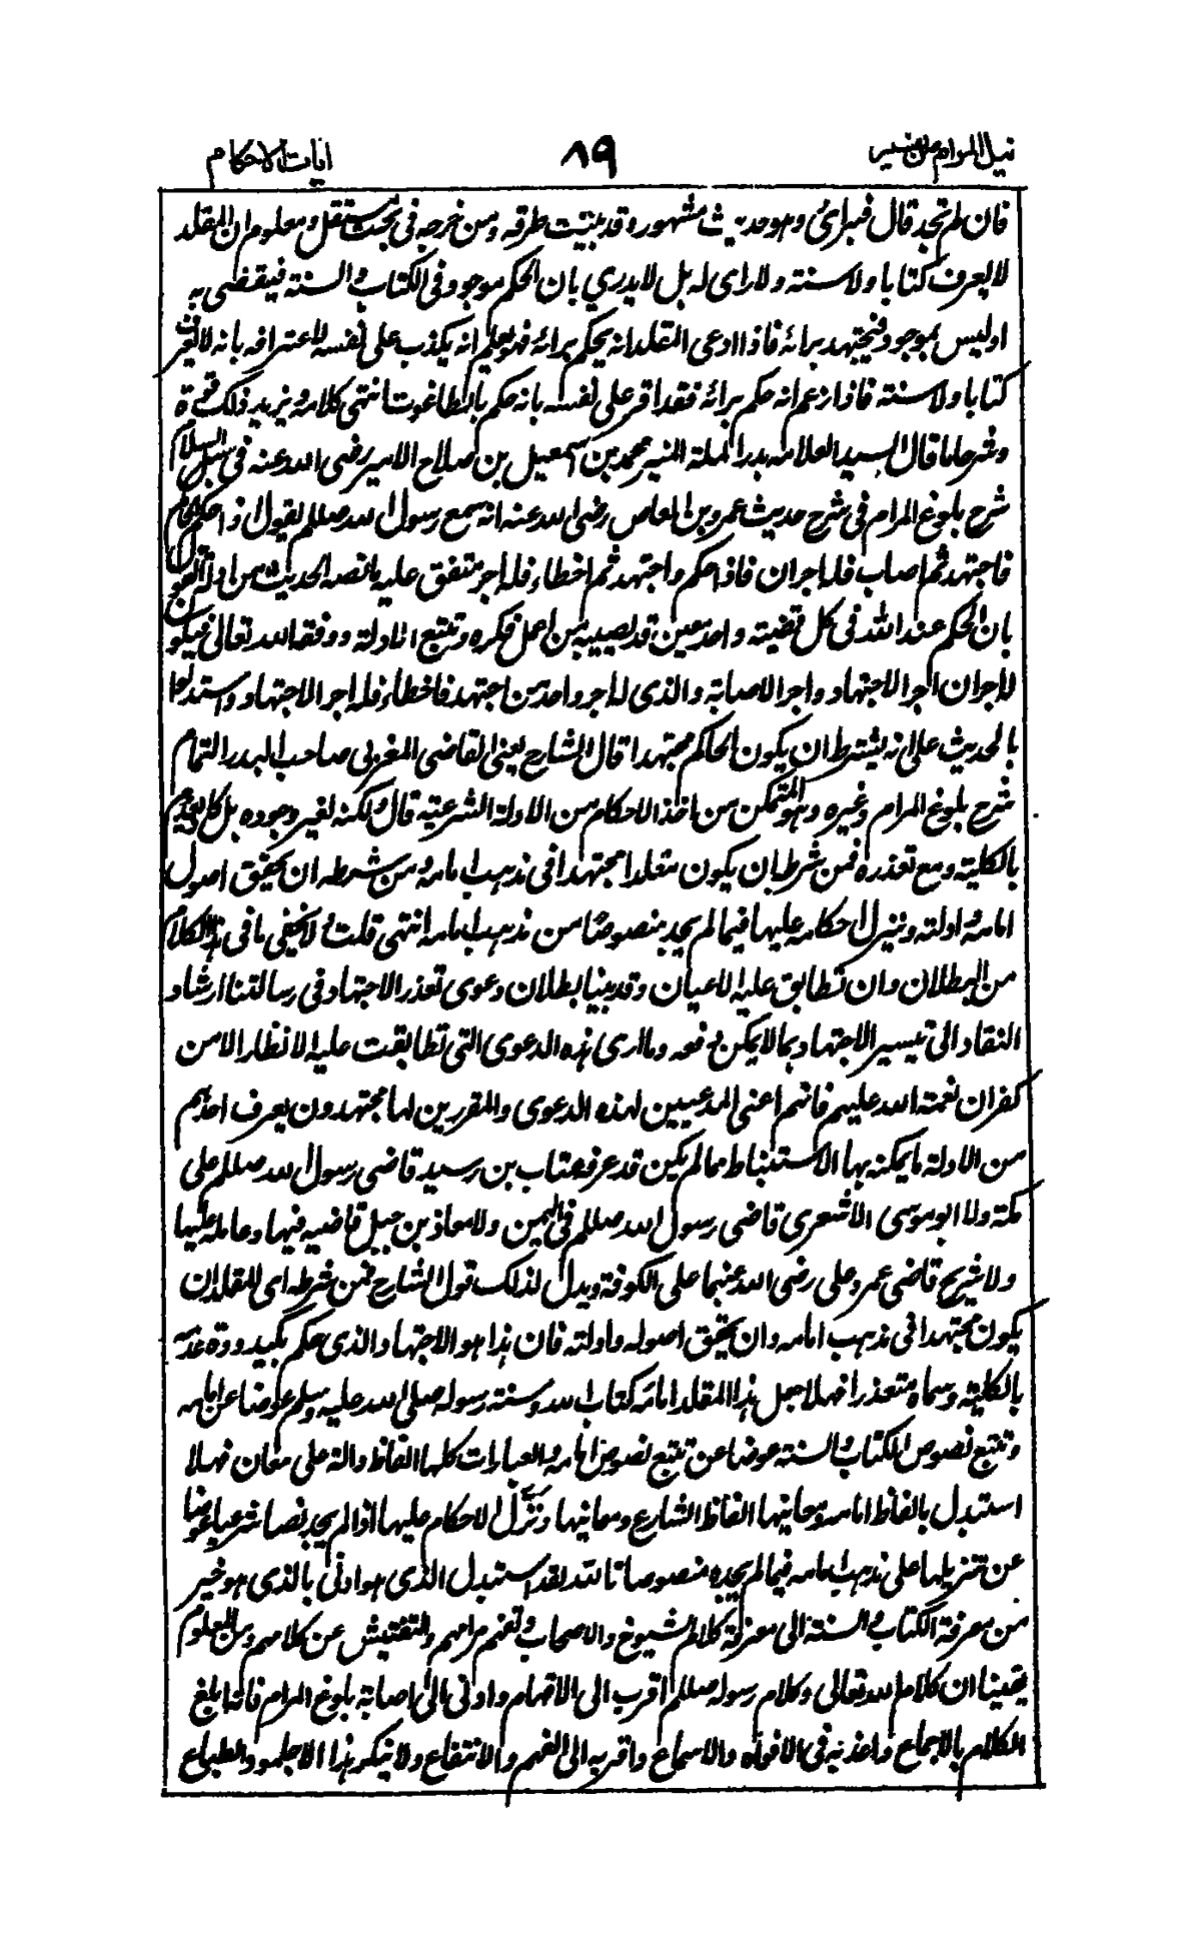 نيل المرام من تفسير ٨٩ ايات الاحكام
فان لم تجد قال فبرائى وهو حديث مشهور وقد بينت طرقه ومن خرجه فى بحث مستقل ومعلوم ان المقلد
لا يعرف كتابا ولا سنة ولا راى له بل لا يدري بان الحكم موجود فى الكتاب والسنة فيقضى به
او ليس بموجود فيجتهد برائه فاذا ادعى المقلد انه يحكم برائه فهو يعلم انه يكذب على نفسه لاعترافه بانه لا يعرف
كتابا ولا سنة فاذا زعم انه حكم برائه فقد اقر على نفسه بانه حكم بالطاغوت انتهى كلامه ويزيد ذلك قوة
وشرحا ما قال السيد العلامة بدر الملة المنير محمد بن اسمعيل بن صلاح الامير رضى الله عنه فى سبل السلام
شرح بلوغ المرام فى شرح حديث عمرو بن العاص رضى الله عنه انه سمع رسول الله صلعم يقول اذا حكم الحاكم
فاجتهد ثم اصاب فله اجران فاذا حكم واجتهد ثم اخطاء فله اجر متفق عليه ما نصه الحديث من ادلة القول
بان الحكم عند الله فى كل قضية واحد معين قد يصيبه من اعمل فكره وتتبع الادلة ووفقه الله تعالى فيكون
له اجران اجر الاجتهاد واجر الاصابة والذى له اجر واحد من اجتهد فاخطاء فله اجر الاجتهاد واستدلوا
بالحديث على انه يشترط ان يكون الحاكم مجتهدا قال الشارح يعنى القاضى المغربى صاحب البدر التمام
شرح بلوغ المرام وغيره وهو المتمكن من اخذ الاحكام من الادلة الشرعية قال ولكنه لغير وجوده بل كاد يعدم
بالكلية ومع تعذره فمن شرطه ان يكون مقلدا مجتهدا فى مذهب امامه ومن شرطه ان يحقق اصول
امامه وادلته وينزل احكامه عليها فيما لم يجد منصوصا من مذهب امامه انتهى قلت ولا يخفى ما فى هذا الكلام
من البطلان وان تطابق عليه الاعيان وقد بينا بطلان دعوى تعذر الاجتهاد فى رسالتنا ارشاد
النقاد الى تيسير الاجتهاد بما لا يمكن دفعه وما ارى هذه الدعوى التى تطابقت عليه الانظار الا من
كفران نعمة الله عليهم فانهم اعنى المدعيين لهذه الدعوى والمقررين لها مجتهدون يعرف احدهم
من الادلة ما يمكنه بها الاستنباط مما لم يكن قد عرفه عتاب بن رسيد قاضى رسول الله صلعم على
مكة ولا ابو موسى الاشعرى قاضى رسول الله صلعم فى اليمن ولا معاذ بن جبل قاضيه فيها وعامله عليها
ولا شريح قاضى عمر وعلى رضى الله عنهما على الكوفة ويدل لذلك قول الشارح فمن شرطه اى المقلد ان
يكون مجتهدا فى مذهب امامه وان يحقق اصوله وادلته فان هذا هو الاجتهاد الذى حكم بكيدودة عدمه
بالكلية وسماه متعذرا فهلا جعل هذا المقلد امامه كتاب الله وسنة رسوله صلى الله عليه وسلم عوضا عن امامه
وتتبع نصوص الكتاب والسنة عوضا عن تتبع نصوص امامه والعبارات كلها الفاظ دالة على معان فهلا
استبدل بالفاظ امامه ومعانيها الفاظ الشارع ومعانيها ونزل الاحكام عليها اذا لم يجد نصا شرعيا عوضا
عن تنزيلها على مذهب امامه فيما لم يجده منصوصا تالله لقد استبدل الذى هو ادنى بالذى هو خير
من معرفة الكتاب والسنة الى معرفة كلام الشيوخ والاصحاب وتفهم مرامهم والتفتيش عن كلامهم ومن المعلوم
يقينا ان كلام الله تعالى وكلام رسوله صلعم اقرب الى الافهام وادنى الى اصابة بلوغ المرام فانه ابلغ
الكلام بالاجماع واعذبه فى الافواه والاسماع واقربه الى الفهم والانتفاع ولا ينكر هذا الا جلمود الطباع